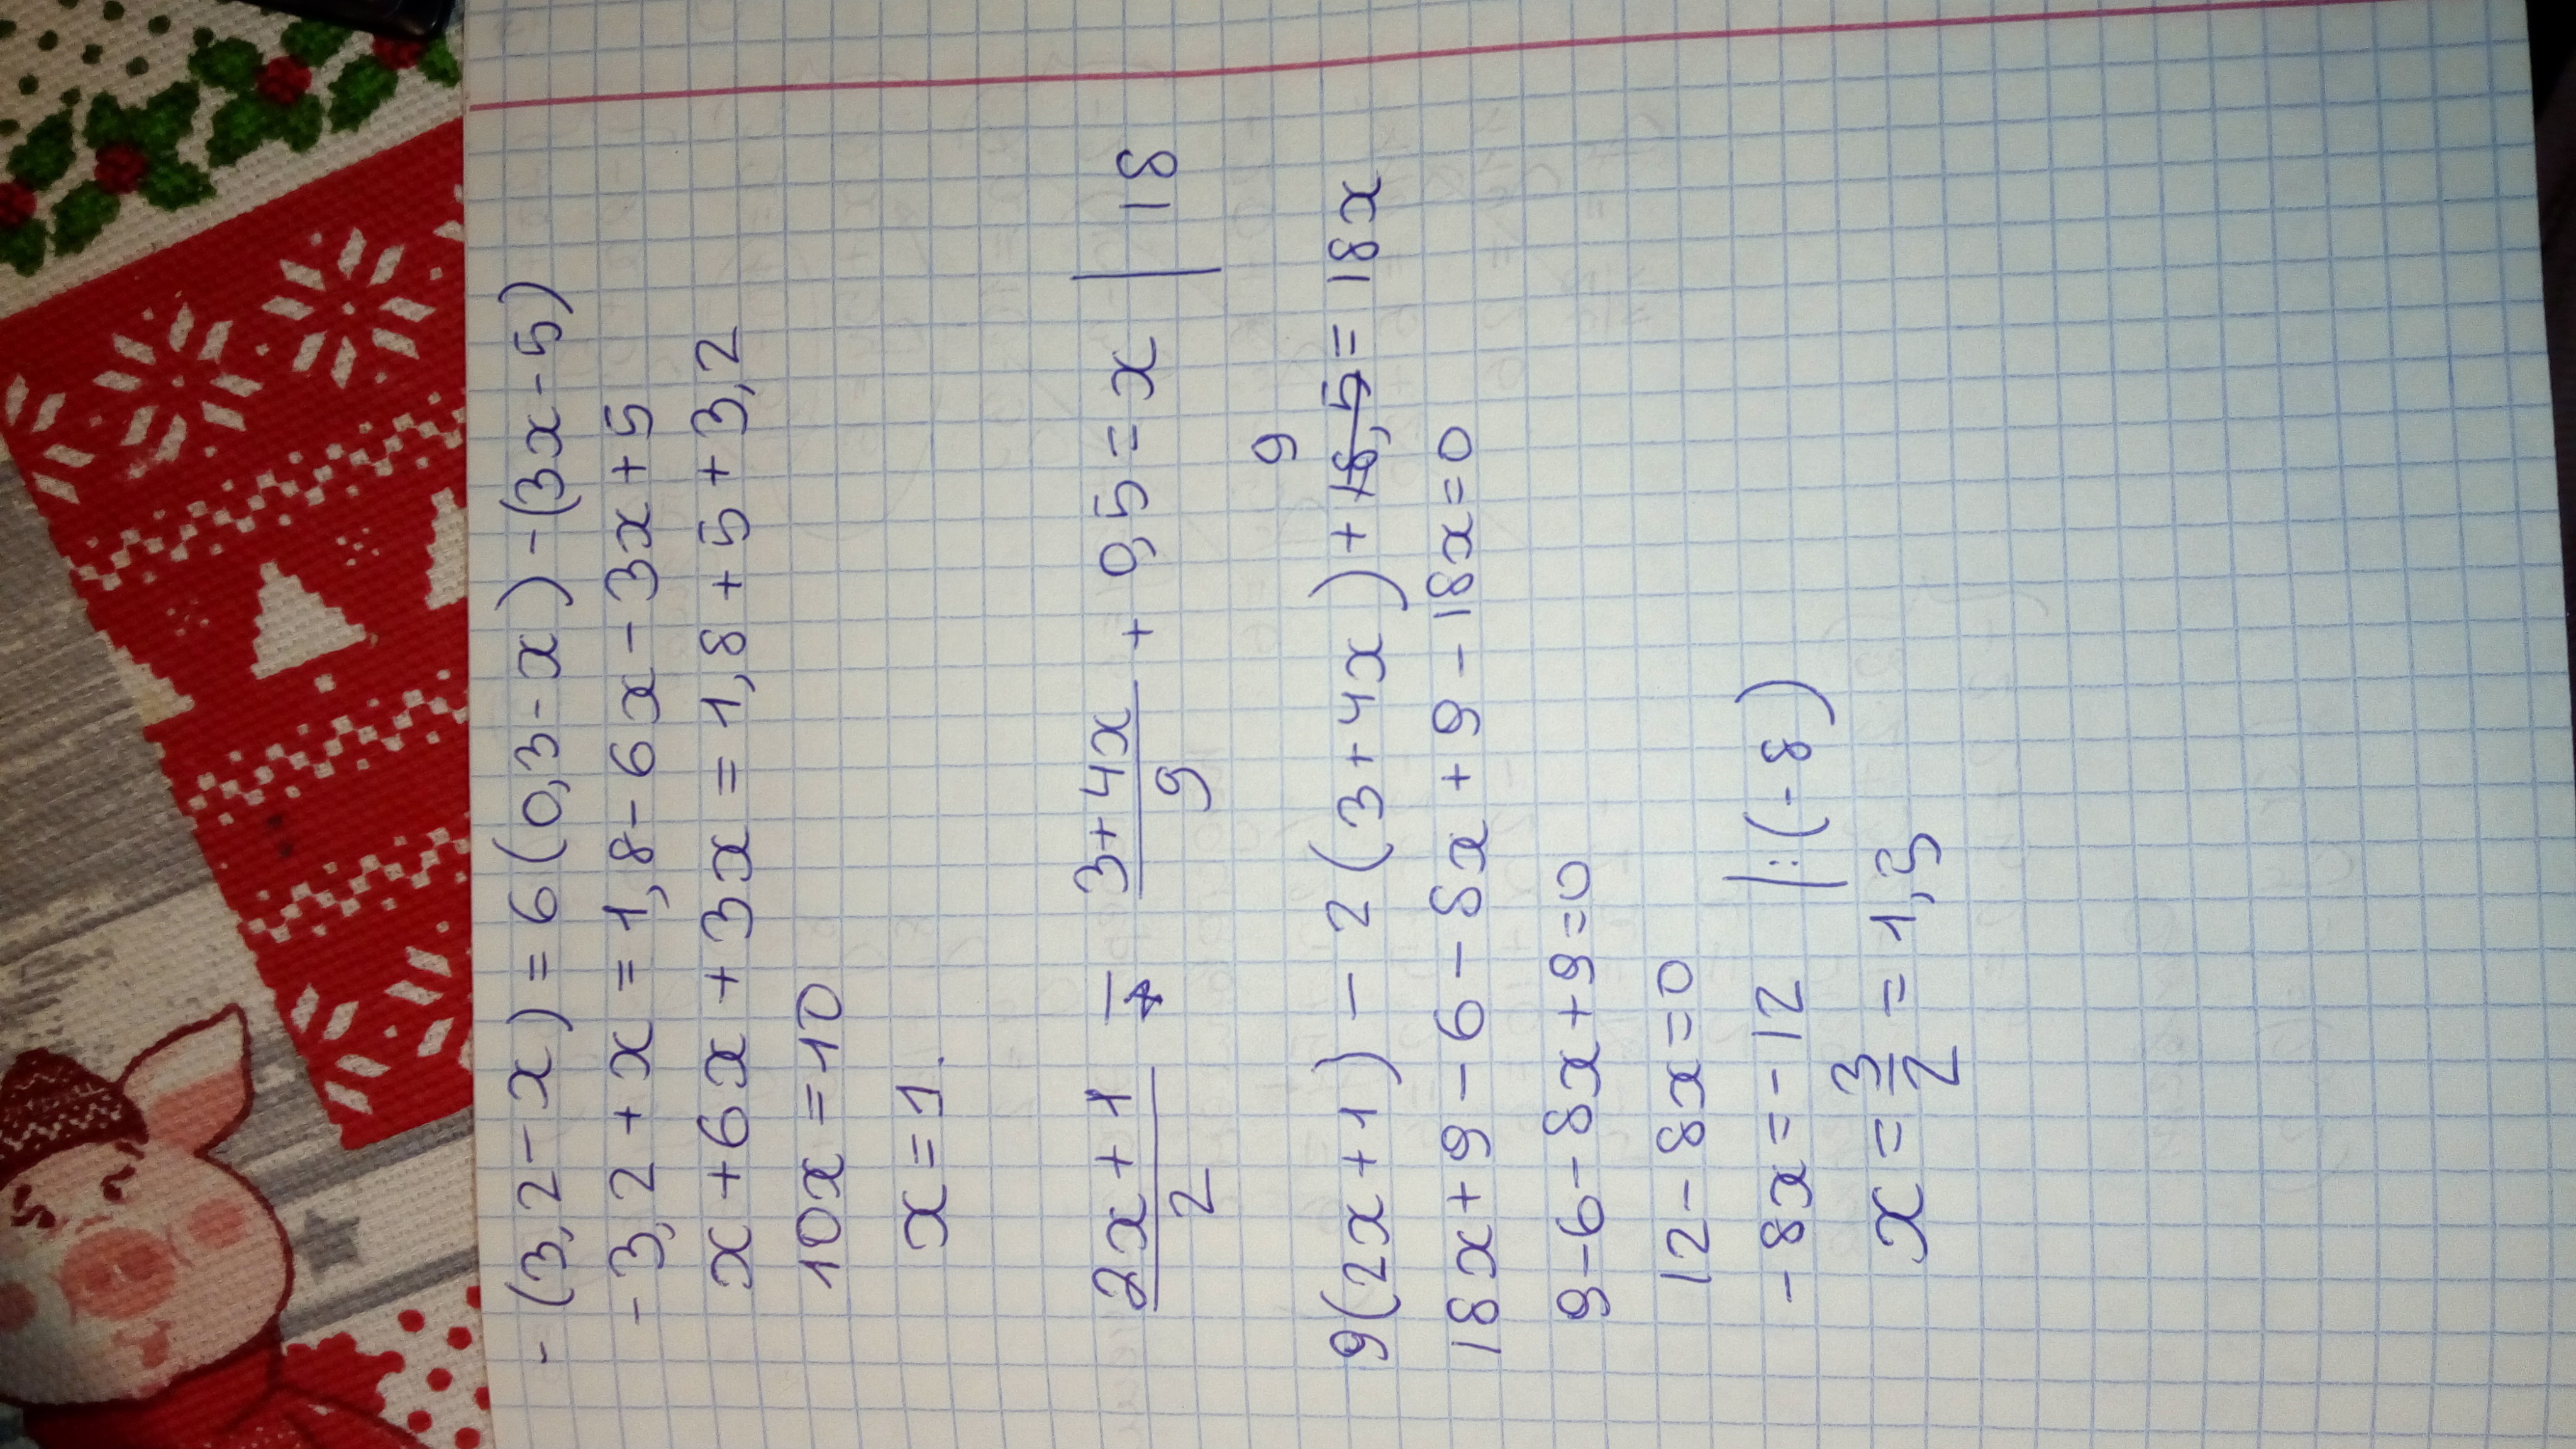 -(3,2-x)=6(0,3-x)-(3x-5)
-3,2+x=1,8-6x-3x+5
x+6x+3x=1,8+5+3,2
10x=10
x=1.
\frac{2x+1}{2} - \frac{3+4x}{9} + 0,5=x | 18
9(2x+1)-2(3+4x)+9=18x
18x+9-6-8x+9-18x=0
9-6-8x+9=0
12-8x=0
-8x=-12 |:(-8)
x=\frac{3}{2}=1,5